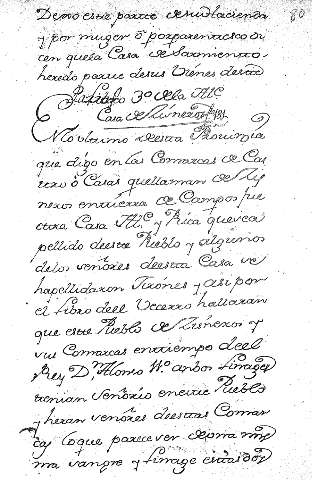 80
Demo este parece de su Hacienda
y por muger ô por parentesco di
cen que la Casa de Sarmiento
heredo parte de sus Vienes desta
Parrafo 3º de la Ill
Casa de Zisneros
No ultimo destra Provincia
que digo en las Comarcas de Cas
tro ô Casas que llaman de Zis
neros en tierra de Campos fue
otra Casa Ill. y Rica que ca
pellido de este Pueblo y algunos
de los señores de esta Casa se
hapellidaron Jirones y asi por
el Libro de el Vecerro hallaran
que este Pueblo de Zisneros y
sus Comarcas en tiempo de el
Rey Dn. Alonso anbos linages
tenian señorio en este Pueblo
y heran señores de estas Comar
cas lo que parece ser de una mis
ma sangre y linage estas dos